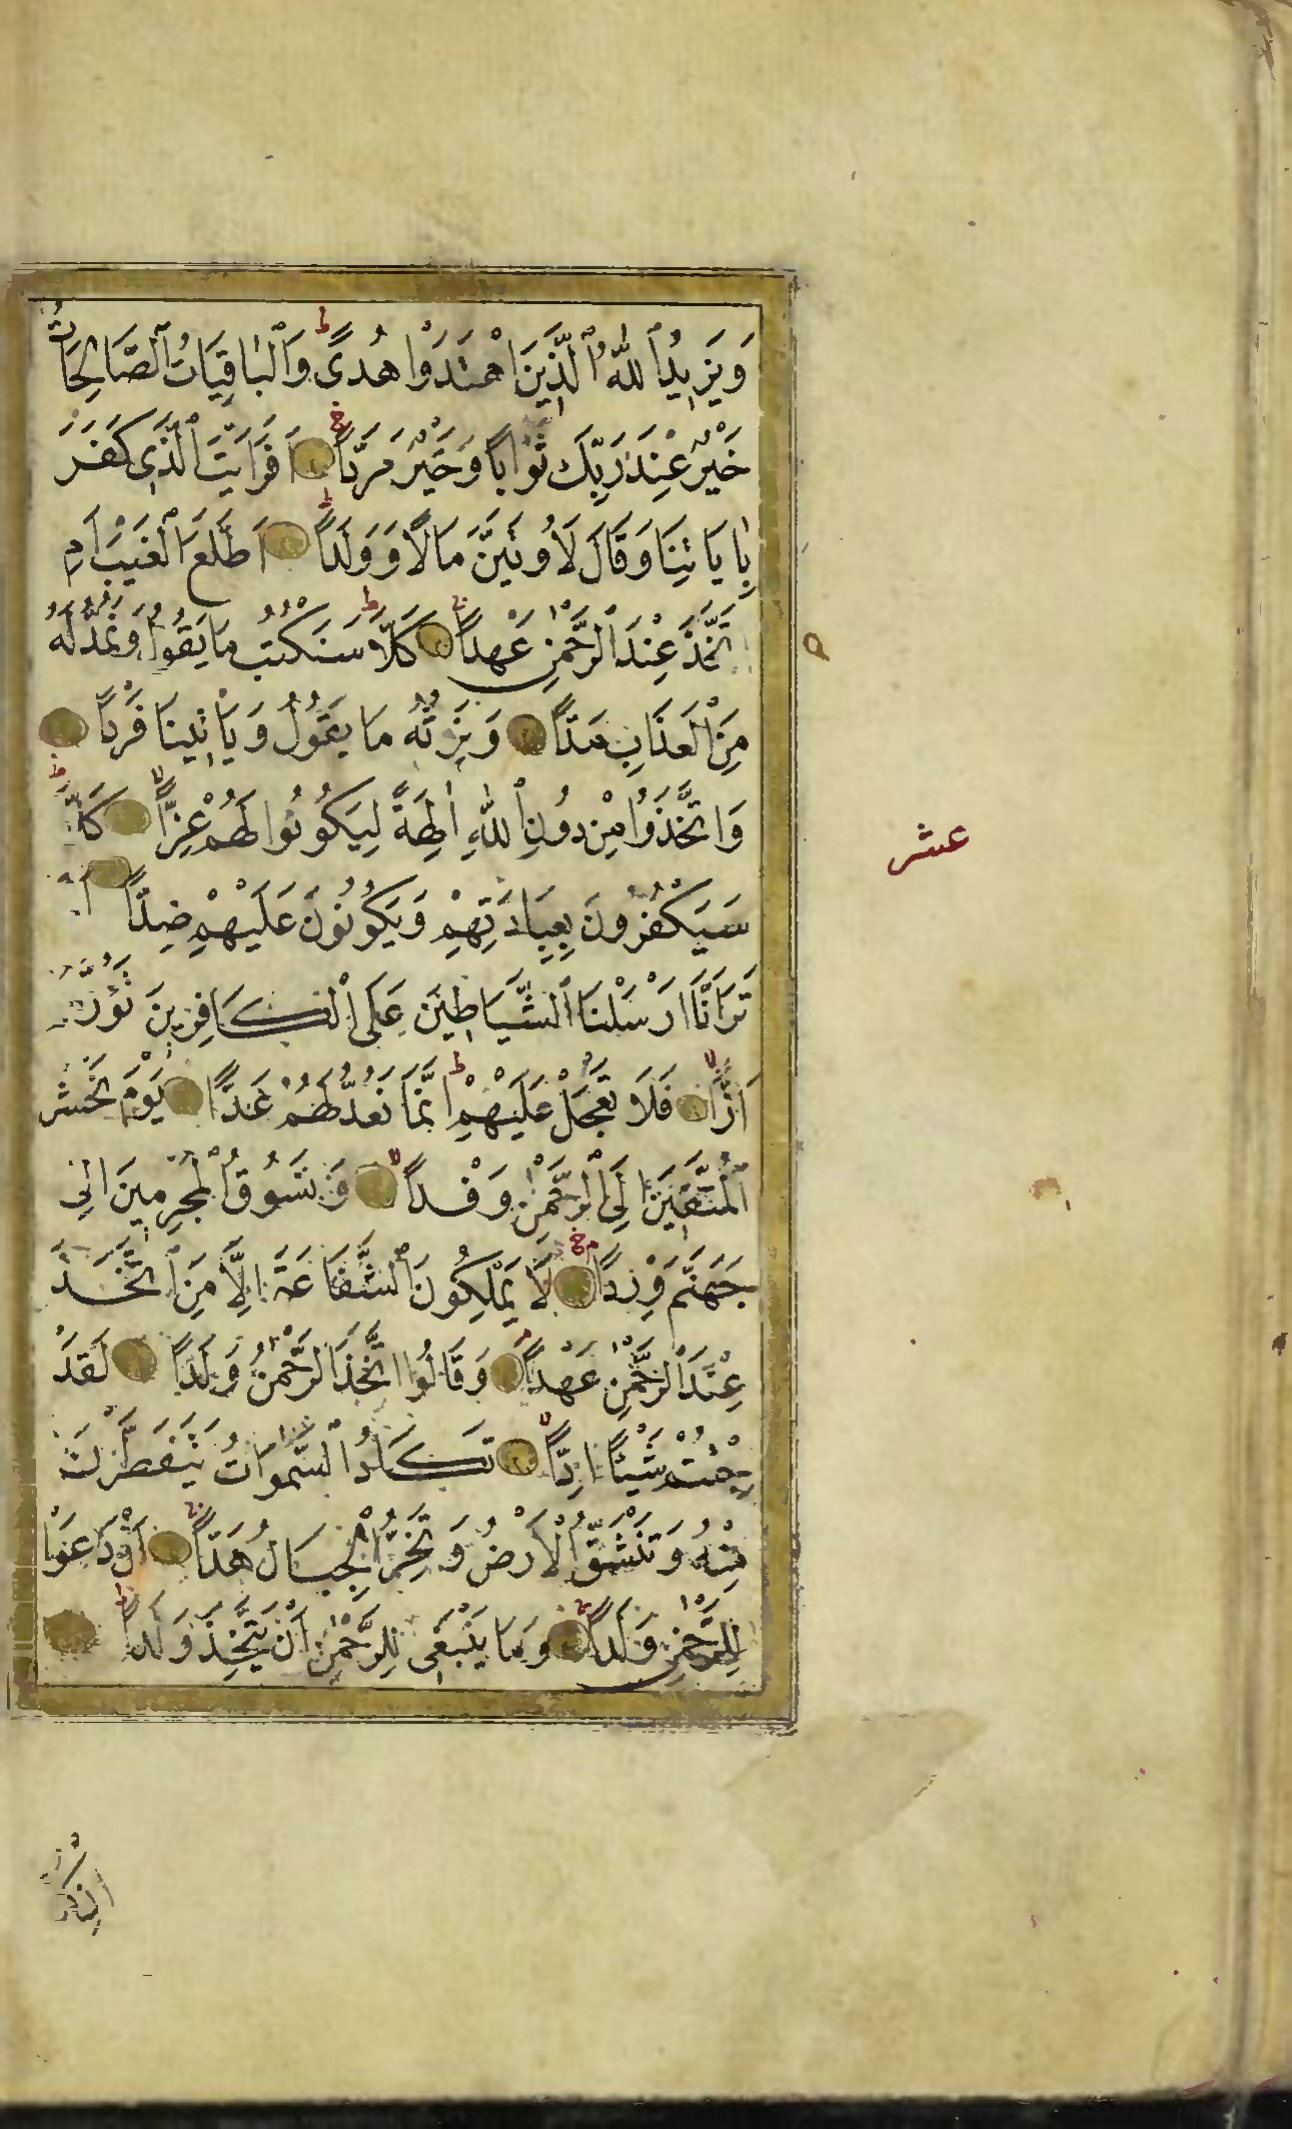 وَيَزِيدُ ٱللّٰهُ ٱلَّذِينَ اهْتَدَوْا هُدًى ط وَٱلْبَاقِيَاتُ ٱلصَّالِحَاتُ
خَيْرٌ عِنْدَ رَبِّكَ ثَوَابًا وَخَيْرٌ مَرَدًّا اَفَرَاَيْتَ ٱلَّذِي كَفَرَ
بِاٰيَاتِنَا وَقَالَ لَاُوتَيَنَّ مَالًا وَوَلَدًا ط اَطَّلَعَ ٱلْغَيْبَ اَمِ
اتَّخَذَ عِنْدَ ٱلرَّحْمٰنِ عَهْدًا كَلَّا ط سَنَكْتُبُ مَا يَقُولُ وَنَمُدُّ لَهُ
مِنَ ٱلْعَذَابِ مَدًّا وَنَرِثُهُ مَا يَقُولُ وَيَاْتِينَا فَرْدًا
وَاتَّخَذُوا مِنْ دُونِ ٱللّٰهِ اٰلِهَةً لِيَكُونُوا لَهُمْ عِزًّا لا كَلَّا ط
عشر
سَيَكْفُرُونَ بِعِبَادَتِهِمْ وَيَكُونُونَ عَلَيْهِمْ ضِدًّا اَلَمْ
تَرَ اَنَّا اَرْسَلْنَا ٱلشَّيَاطِينَ عَلَى ٱلْكَافِرِينَ تَؤُزُّهُمْ
اَزًّا لا فَلَا تَعْجَلْ عَلَيْهِمْ ط اِنَّمَا نَعُدُّ لَهُمْ عَدًّا يَوْمَ نَحْشُرُ
ٱلْمُتَّقِينَ اِلَى ٱلرَّحْمٰنِ وَفْدًا لا وَنَسُوقُ ٱلْمُجْرِمِينَ اِلٰى
جَهَنَّمَ وِرْدًا لَا يَمْلِكُونَ ٱلشَّفَاعَةَ اِلَّا مَنِ ٱتَّخَذَ
عِنْدَ ٱلرَّحْمٰنِ عَهْدًا وَقَالُوا اتَّخَذَ ٱلرَّحْمٰنُ وَلَدًا لَقَدْ
جِئْتُمْ شَيْئًا اِدًّا لا تَكَادُ ٱلسَّمٰوَاتُ يَتَفَطَّرْنَ
مِنْهُ وَتَنْشَقُّ ٱلْاَرْضُ وَتَخِرُّ ٱلْجِبَالُ هَدًّا اَنْ دَعَوْا
لِلرَّحْمٰنِ وَلَدًا وَمَا يَنْبَغِي لِلرَّحْمٰنِ اَنْ يَتَّخِذَ وَلَدًا ط